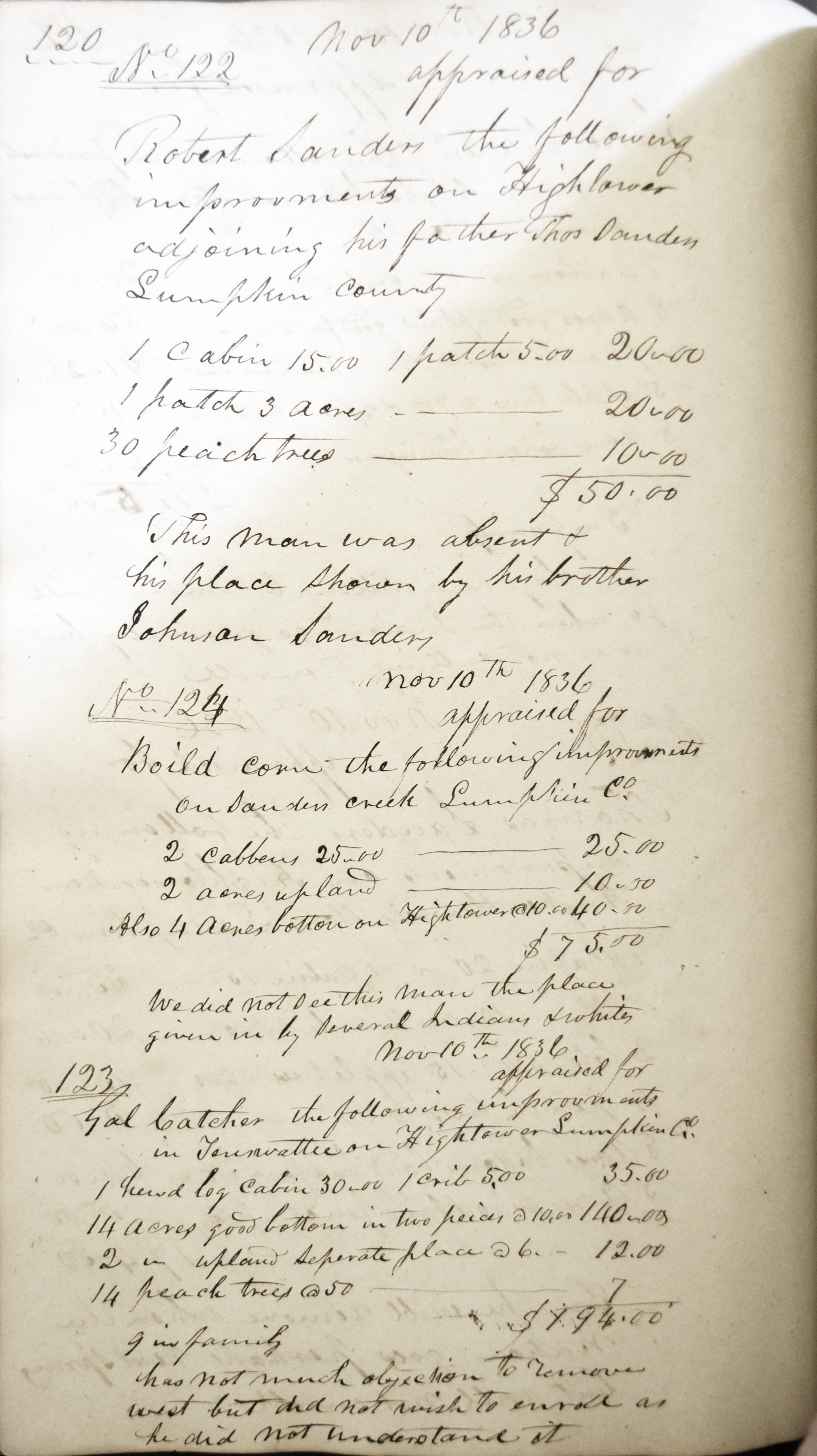 120
Nov 10th 1836
No 122
appraised for
Robert Sanders the following
improvments on Hightower
adjoining his father Thos Sanders
Lumpkin County
1 Cabin 15.00 1 patch 5.00 20.00
1 patch 3 acres - 20.00
30 peach trees 10.00
$50.00
This man was absent &
his place shown by his brother
Johnson Sanders
Nov 10th 1836
No 124
appraised for
Boild corn the following improvments
on Sanders creek Lumpkin Co
2 cabbens 25.00 25.00
2 acres upland 10.00
Also 4 Acres bottom on Hightower @10.00 40.00
$75.00
We did not see this man the place
given in by several Indians & whites
Nov 10th 1836
123
appraised for
Gal Catcher the following improvments
in on Hightower Lumpkin Co.
1 hewd log cabin 30.00 1 crib 5.00 35.00
14 acres good bottom in two peices @10.00 140.00
2 " upland seperate place @6. - 12.00
14 peach trees @50 7
$194.00
9 in family
has not much objection to remove
west but did not wish to enroll as
he did not understand it